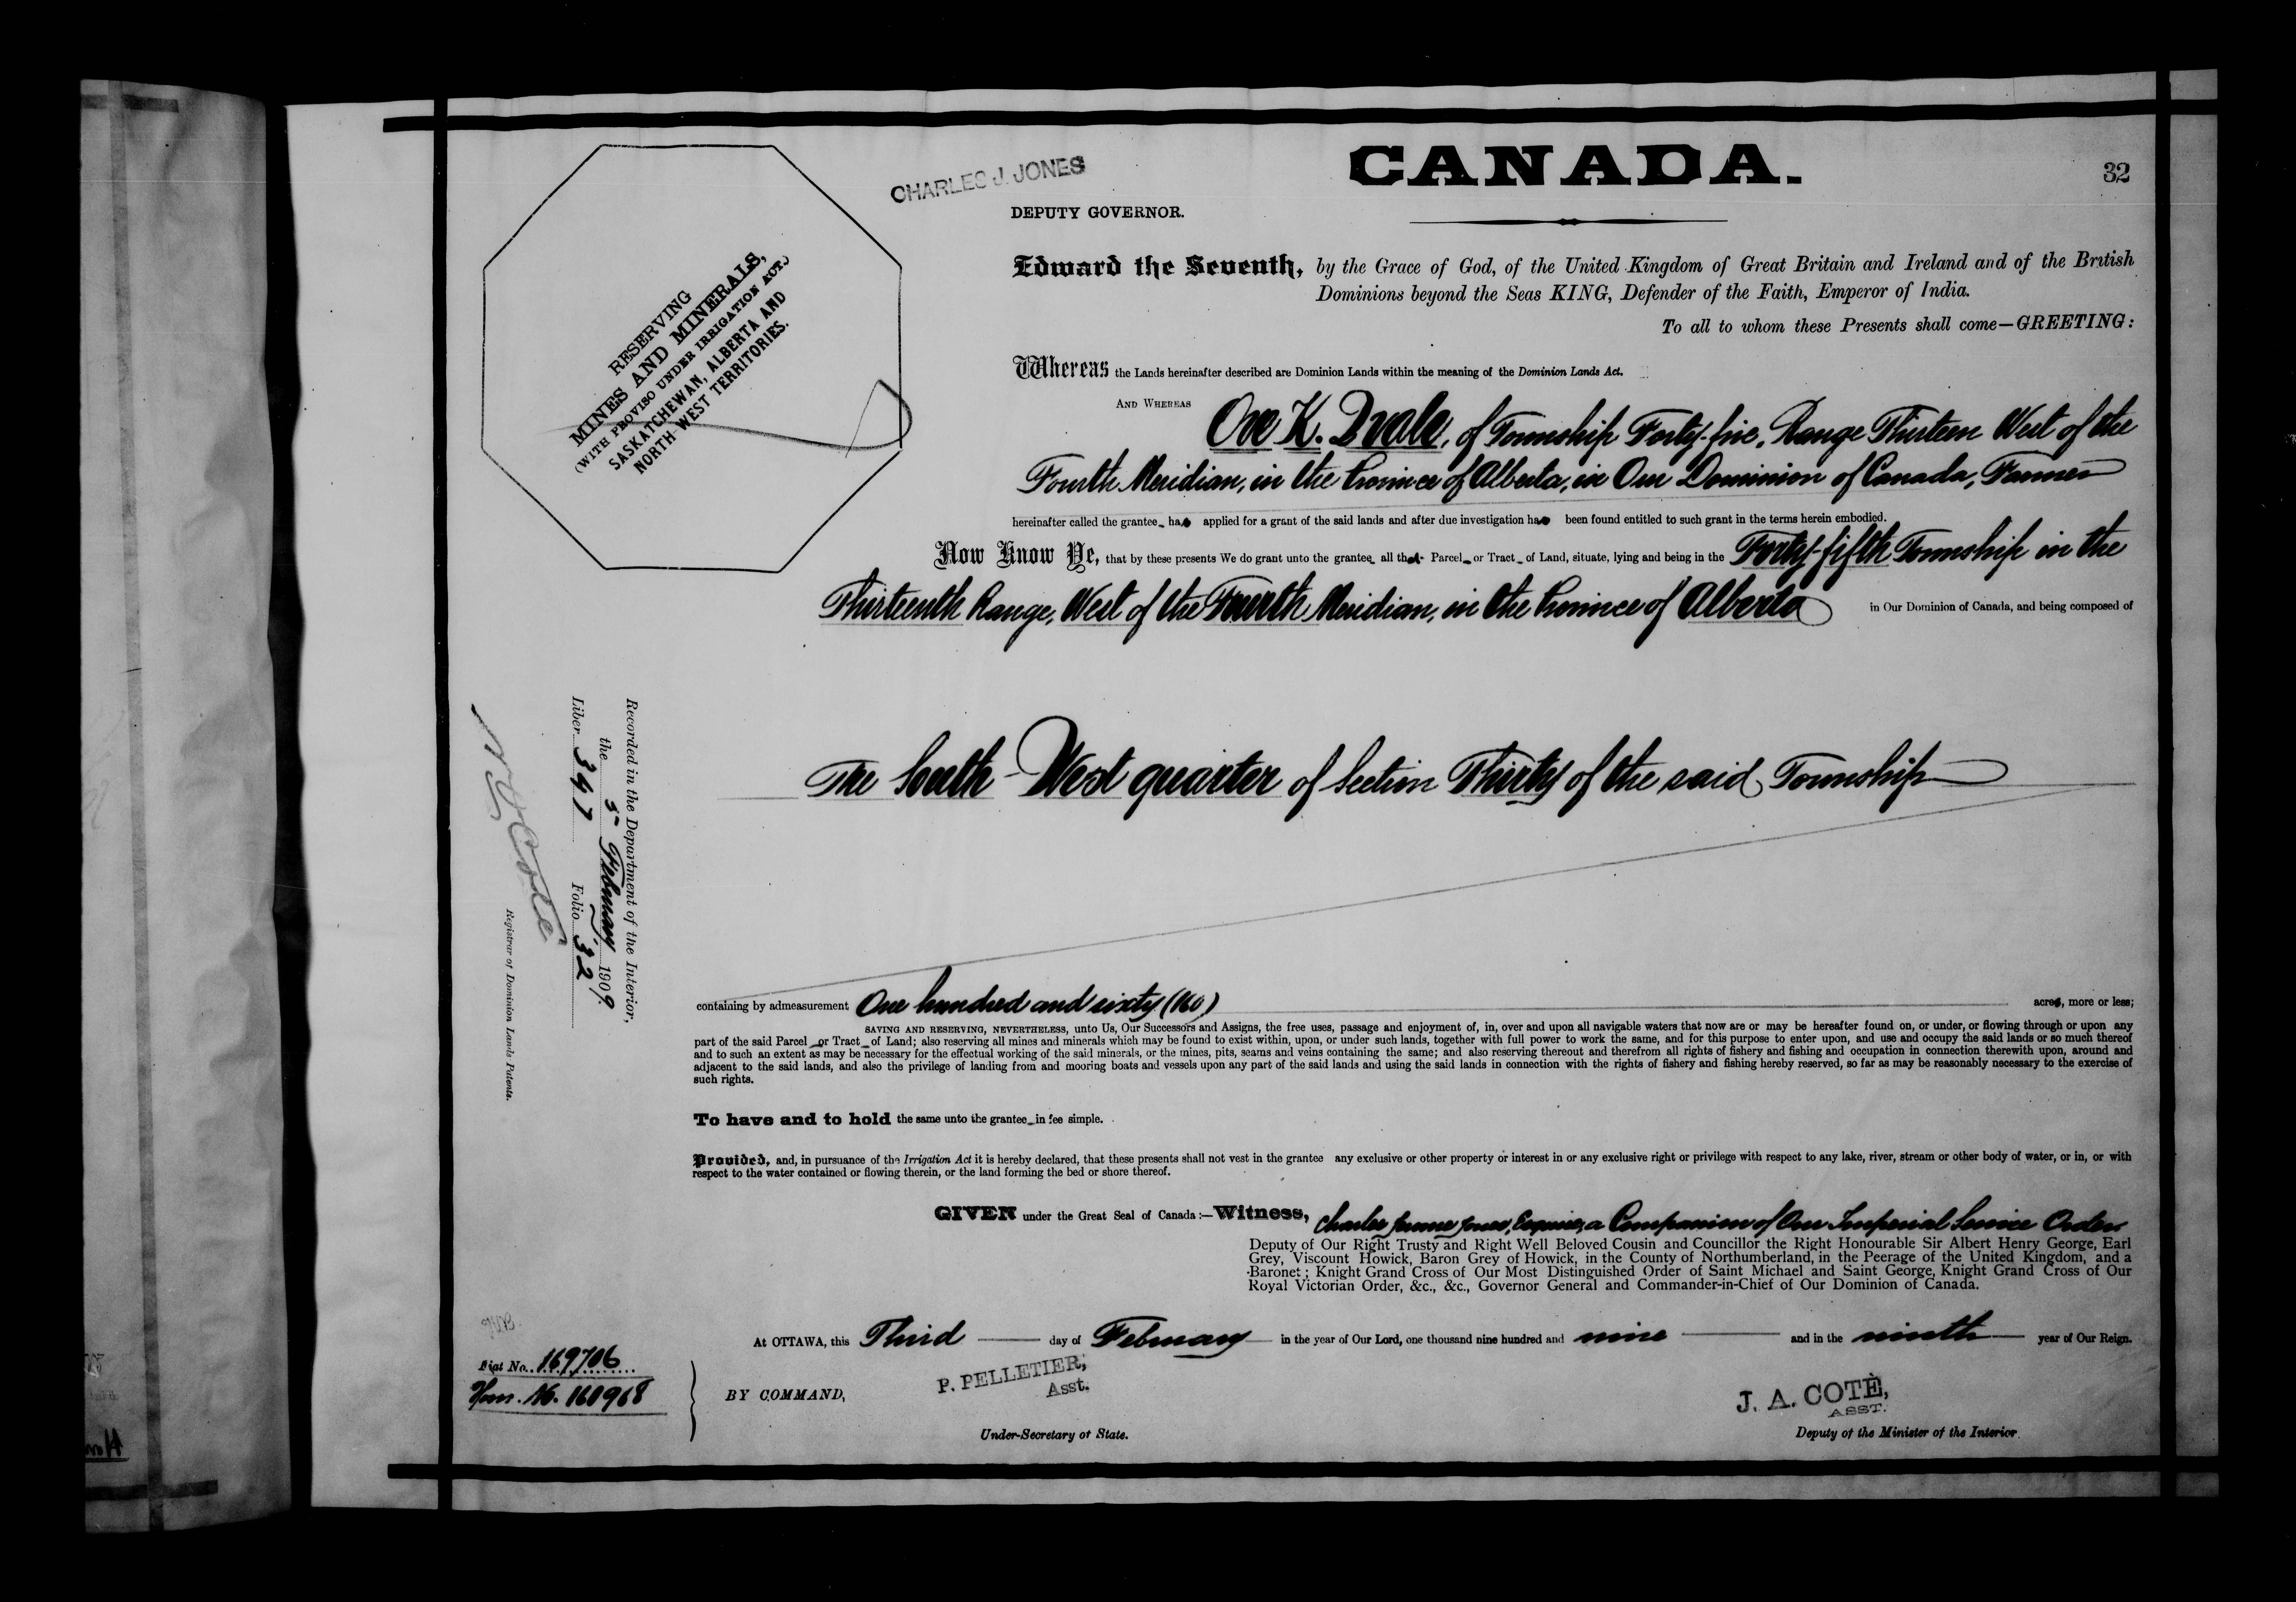 CANADA.
32
CHARLES J. JONES
DEPUTY GOVERNOR.
RESERVING
MINES AND MINERALS,
(WITH PROVISO UNDER IRRIGATION ACT.)
SASKATCHEWAN, ALBERTA AND
NORTH-WEST TERRITORIES.
Edward the Seventh, by the Grace of God, of the United Kingdom of Great Britain and Ireland and of the British
Dominions beyond the Seas KING, Defender of the Faith, Emperor of India.
To all to whom these Presents shall come—GREETING:
Whereas the Lands hereinafter described are Dominion Lands within the meaning of the Dominion Lands Act.
AND WHEREAS Ove K. Dvale, of Township Forty-five, Range Thirteen West of the
Fourth Meridian, in the Province of Alberta, in Our Dominion of Canada, Farmer
hereinafter called the grantee has applied for a grant of the said lands and after due investigation has been found entitled to such grant in the terms herein embodied.
Now Know Ye, that by these presents We do grant unto the grantee all that Parcel or Tract of Land, situate, lying and being in the Forty-fifth Township in the
Thirteenth Range, West of the Fourth Meridian, in the Province of Alberta in Our Dominion of Canada, and being composed of
The South-West quarter of Section Thirty of the said Township
Recorded in the Department of the Interior,
the 3rd February, 1909.
Liber 397 Folio 32
N O Coté
Registrar of Dominion Lands Patents.
containing by admeasurement One hundred and sixty (160) acres, more or less;
SAVING AND RESERVING, NEVERTHELESS, unto Us, Our Successors and Assigns, the free uses, passage and enjoyment of, in, over and upon all navigable waters that now are or may be hereafter found on, or under, or flowing through or upon any
part of the said Parcel or Tract of Land; also reserving all mines and minerals which may be found to exist within, upon, or under such lands, together with full power to work the same, and for this purpose to enter upon, and use and occupy the said lands or so much thereof
and to such an extent as may be necessary for the effectual working of the said minerals, or the mines, pits, seams and veins containing the same; and also reserving thereout and therefrom all rights of fishery and fishing and occupation in connection therewith upon, around and
adjacent to the said lands, and also the privilege of landing from and mooring boats and vessels upon any part of the said lands and using the said lands in connection with the rights of fishery and fishing hereby reserved, so far as may be reasonably necessary to the exercise of
such rights.
To have and to hold the same unto the grantee in fee simple.
Provided, and, in pursuance of the Irrigation Act it is hereby declared, that these presents shall not vest in the grantee any exclusive or other property or interest in or any exclusive right or privilege with respect to any lake, river, stream or other body of water, or in, or with
respect to the water contained or flowing therein, or the land forming the bed or shore thereof.
GIVEN under the Great Seal of Canada:—Witness, Charles Jerome Jones, Esquire, a Companion of Our Imperial Service Order
Deputy of Our Right Trusty and Right Well Beloved Cousin and Councillor the Right Honourable Sir Albert Henry George, Earl
Grey, Viscount Howick, Baron Grey of Howick, in the County of Northumberland, in the Peerage of the United Kingdom, and a
Baronet; Knight Grand Cross of Our Most Distinguished Order of Saint Michael and Saint George, Knight Grand Cross of Our
Royal Victorian Order, &c., &c., Governor General and Commander-in-Chief of Our Dominion of Canada.
At OTTAWA, this Third day of February in the year of Our Lord, one thousand nine hundred and nine and in the ninth year of Our Reign.
Fiat No. 169706
Hom. No. 160968
BY COMMAND,
P. PELLETIER,
Asst.
Under-Secretary of State.
J. A. COTÈ,
ASST.
Deputy of the Minister of the Interior.